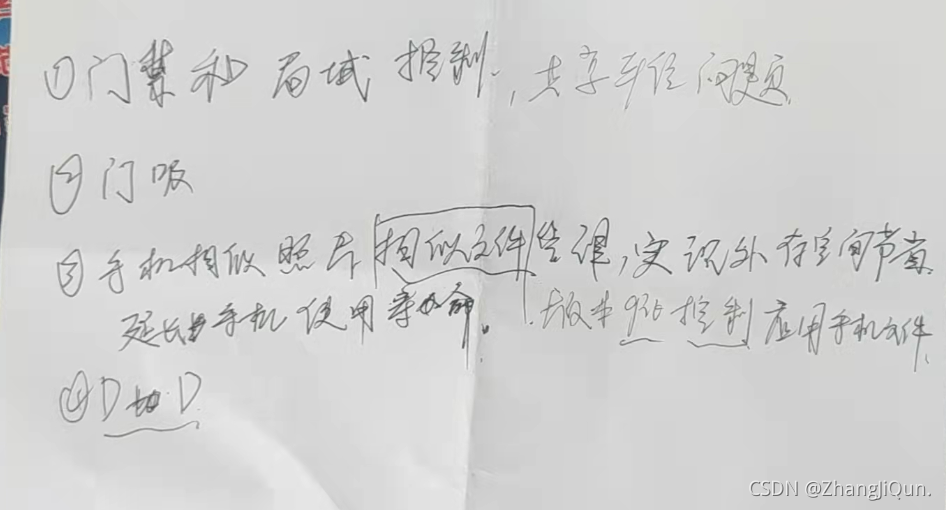 ①门禁和局域控制,共享车位问题
②门吸
③手机相似照片相似文件管理,实现外存空间节省
延长手机使用寿命。版本控制应用手机文件.
④D to D
CSDN @ZhangJiQun.